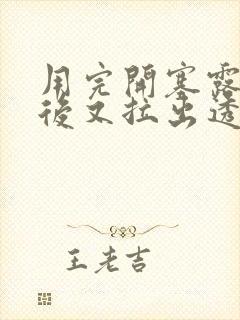 用完開塞露
後又拉出透
王老吉